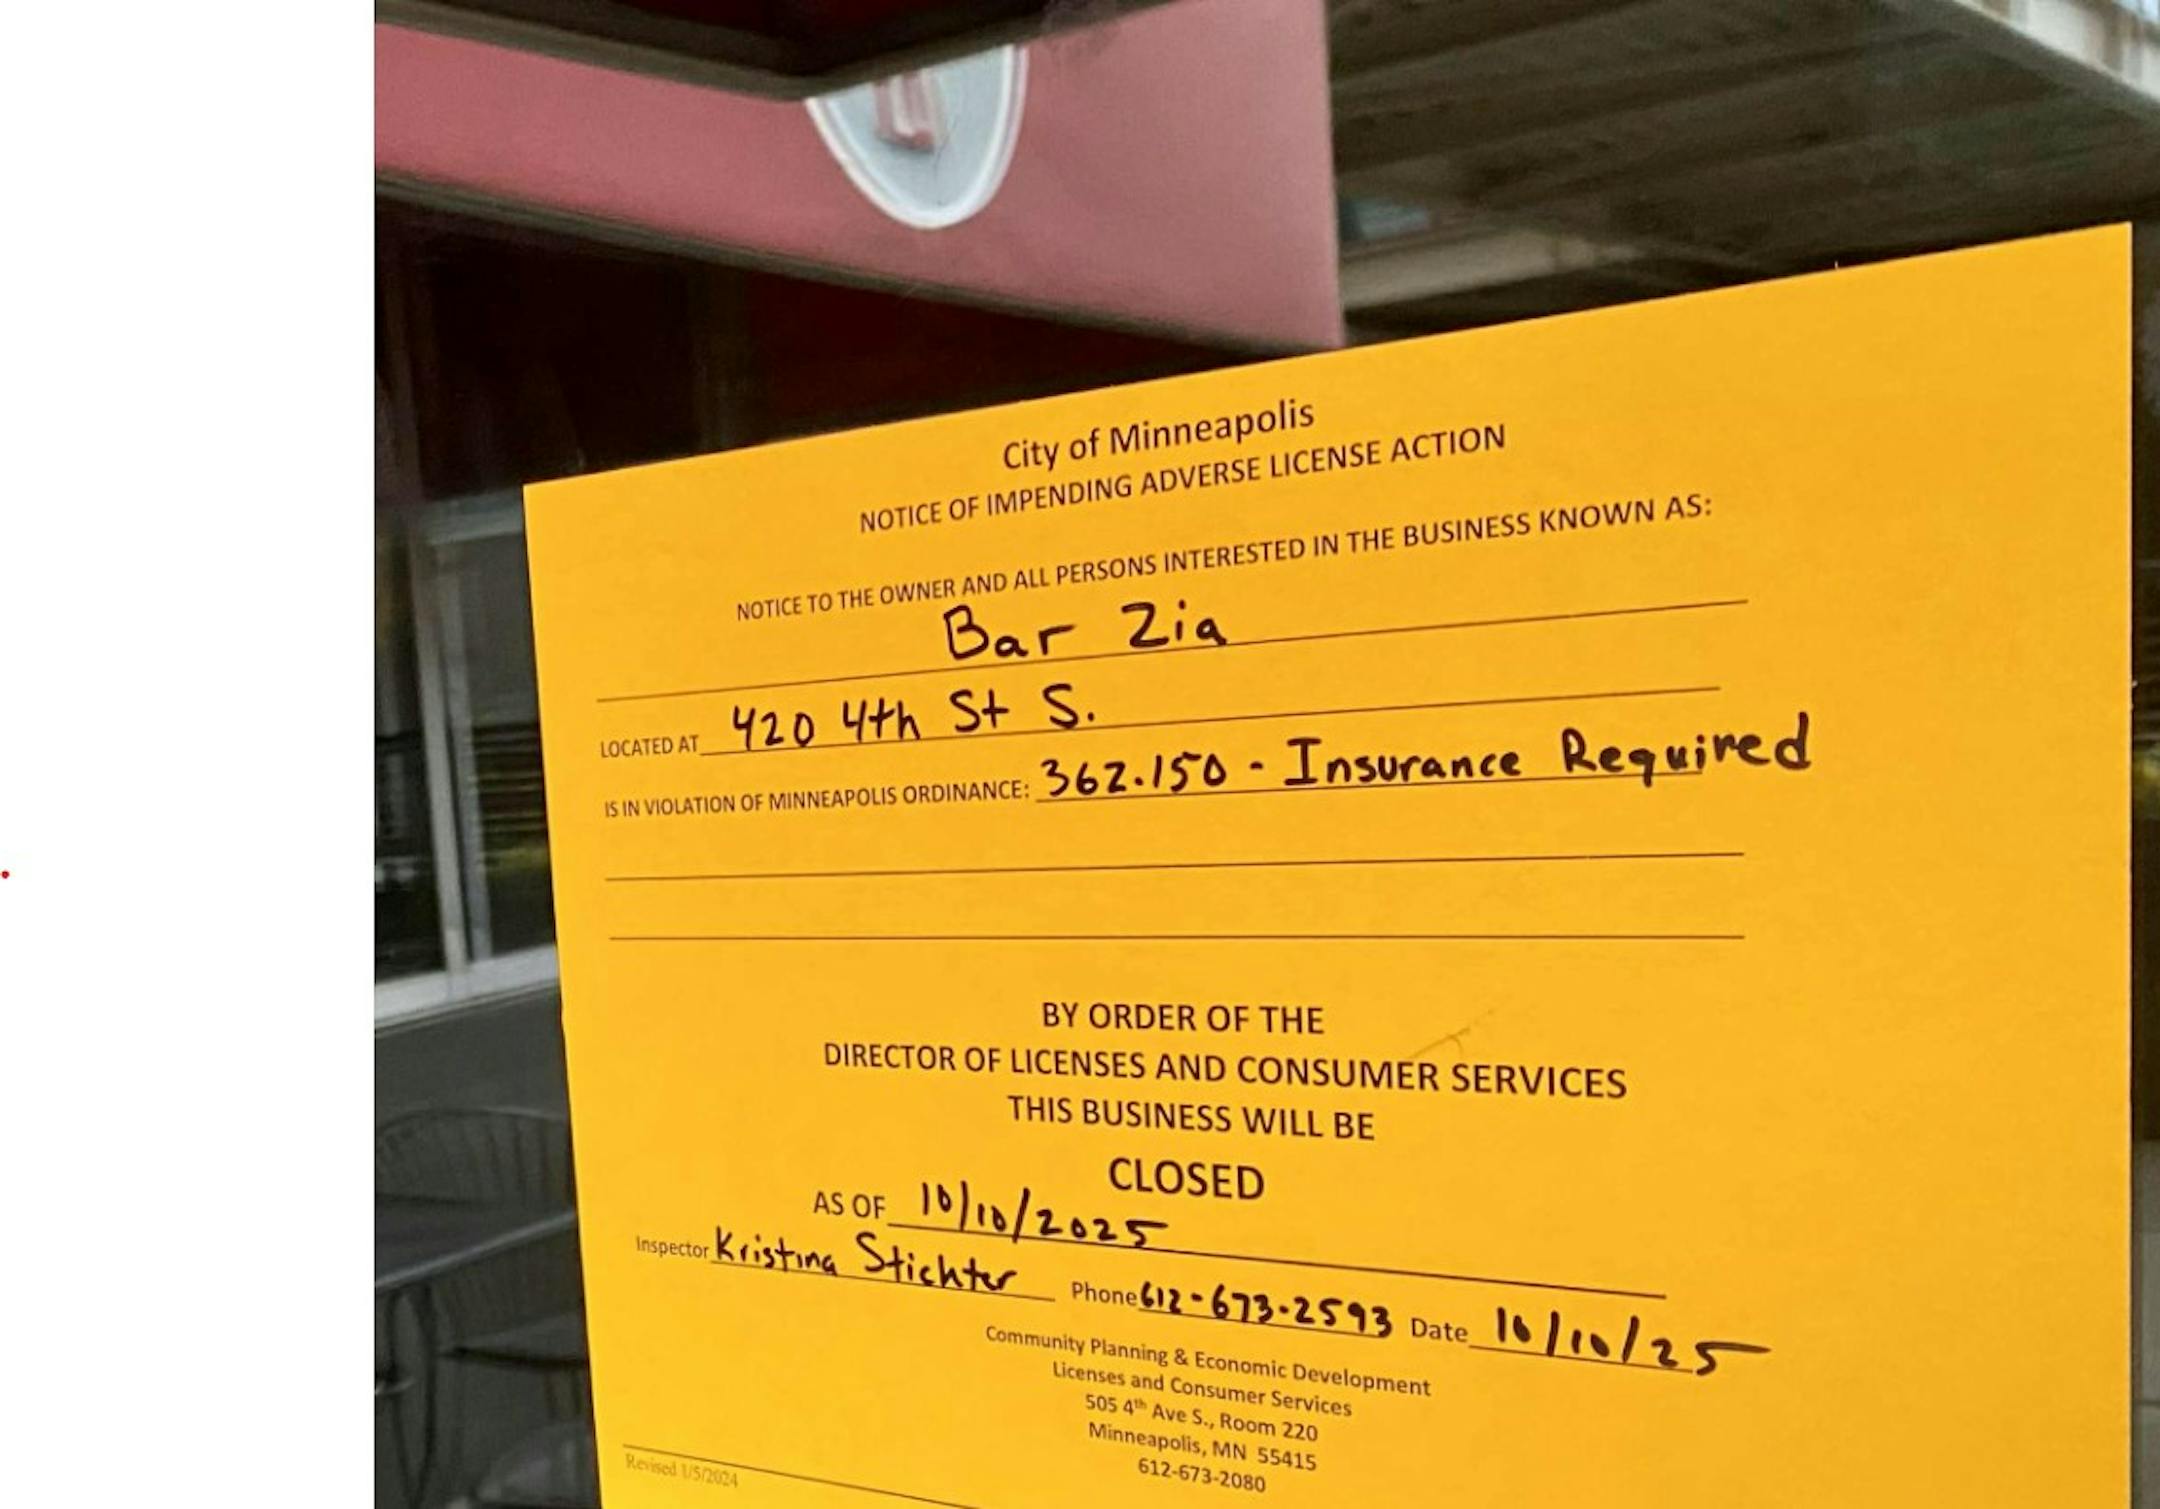 City of Minneapolis
NOTICE OF IMPENDING ADVERSE LICENSE ACTION
NOTICE TO THE OWNER AND ALL PERSONS INTERESTED IN THE BUSINESS KNOWN AS:
Bar Zia
LOCATED AT 420 4th St S.
IS IN VIOLATION OF MINNEAPOLIS ORDINANCE: 362.150 - Insurance Required
BY ORDER OF THE
DIRECTOR OF LICENSES AND CONSUMER SERVICES
THIS BUSINESS WILL BE
CLOSED
AS OF 10/10/2025
Inspector Kristina Stichter Phone 612-673-2593 Date 10/10/25
Community Planning & Economic Development
Licenses and Consumer Services
505 4th Ave S., Room 220
Minneapolis, MN 55415
612-673-2080
Revised 1/5/2024